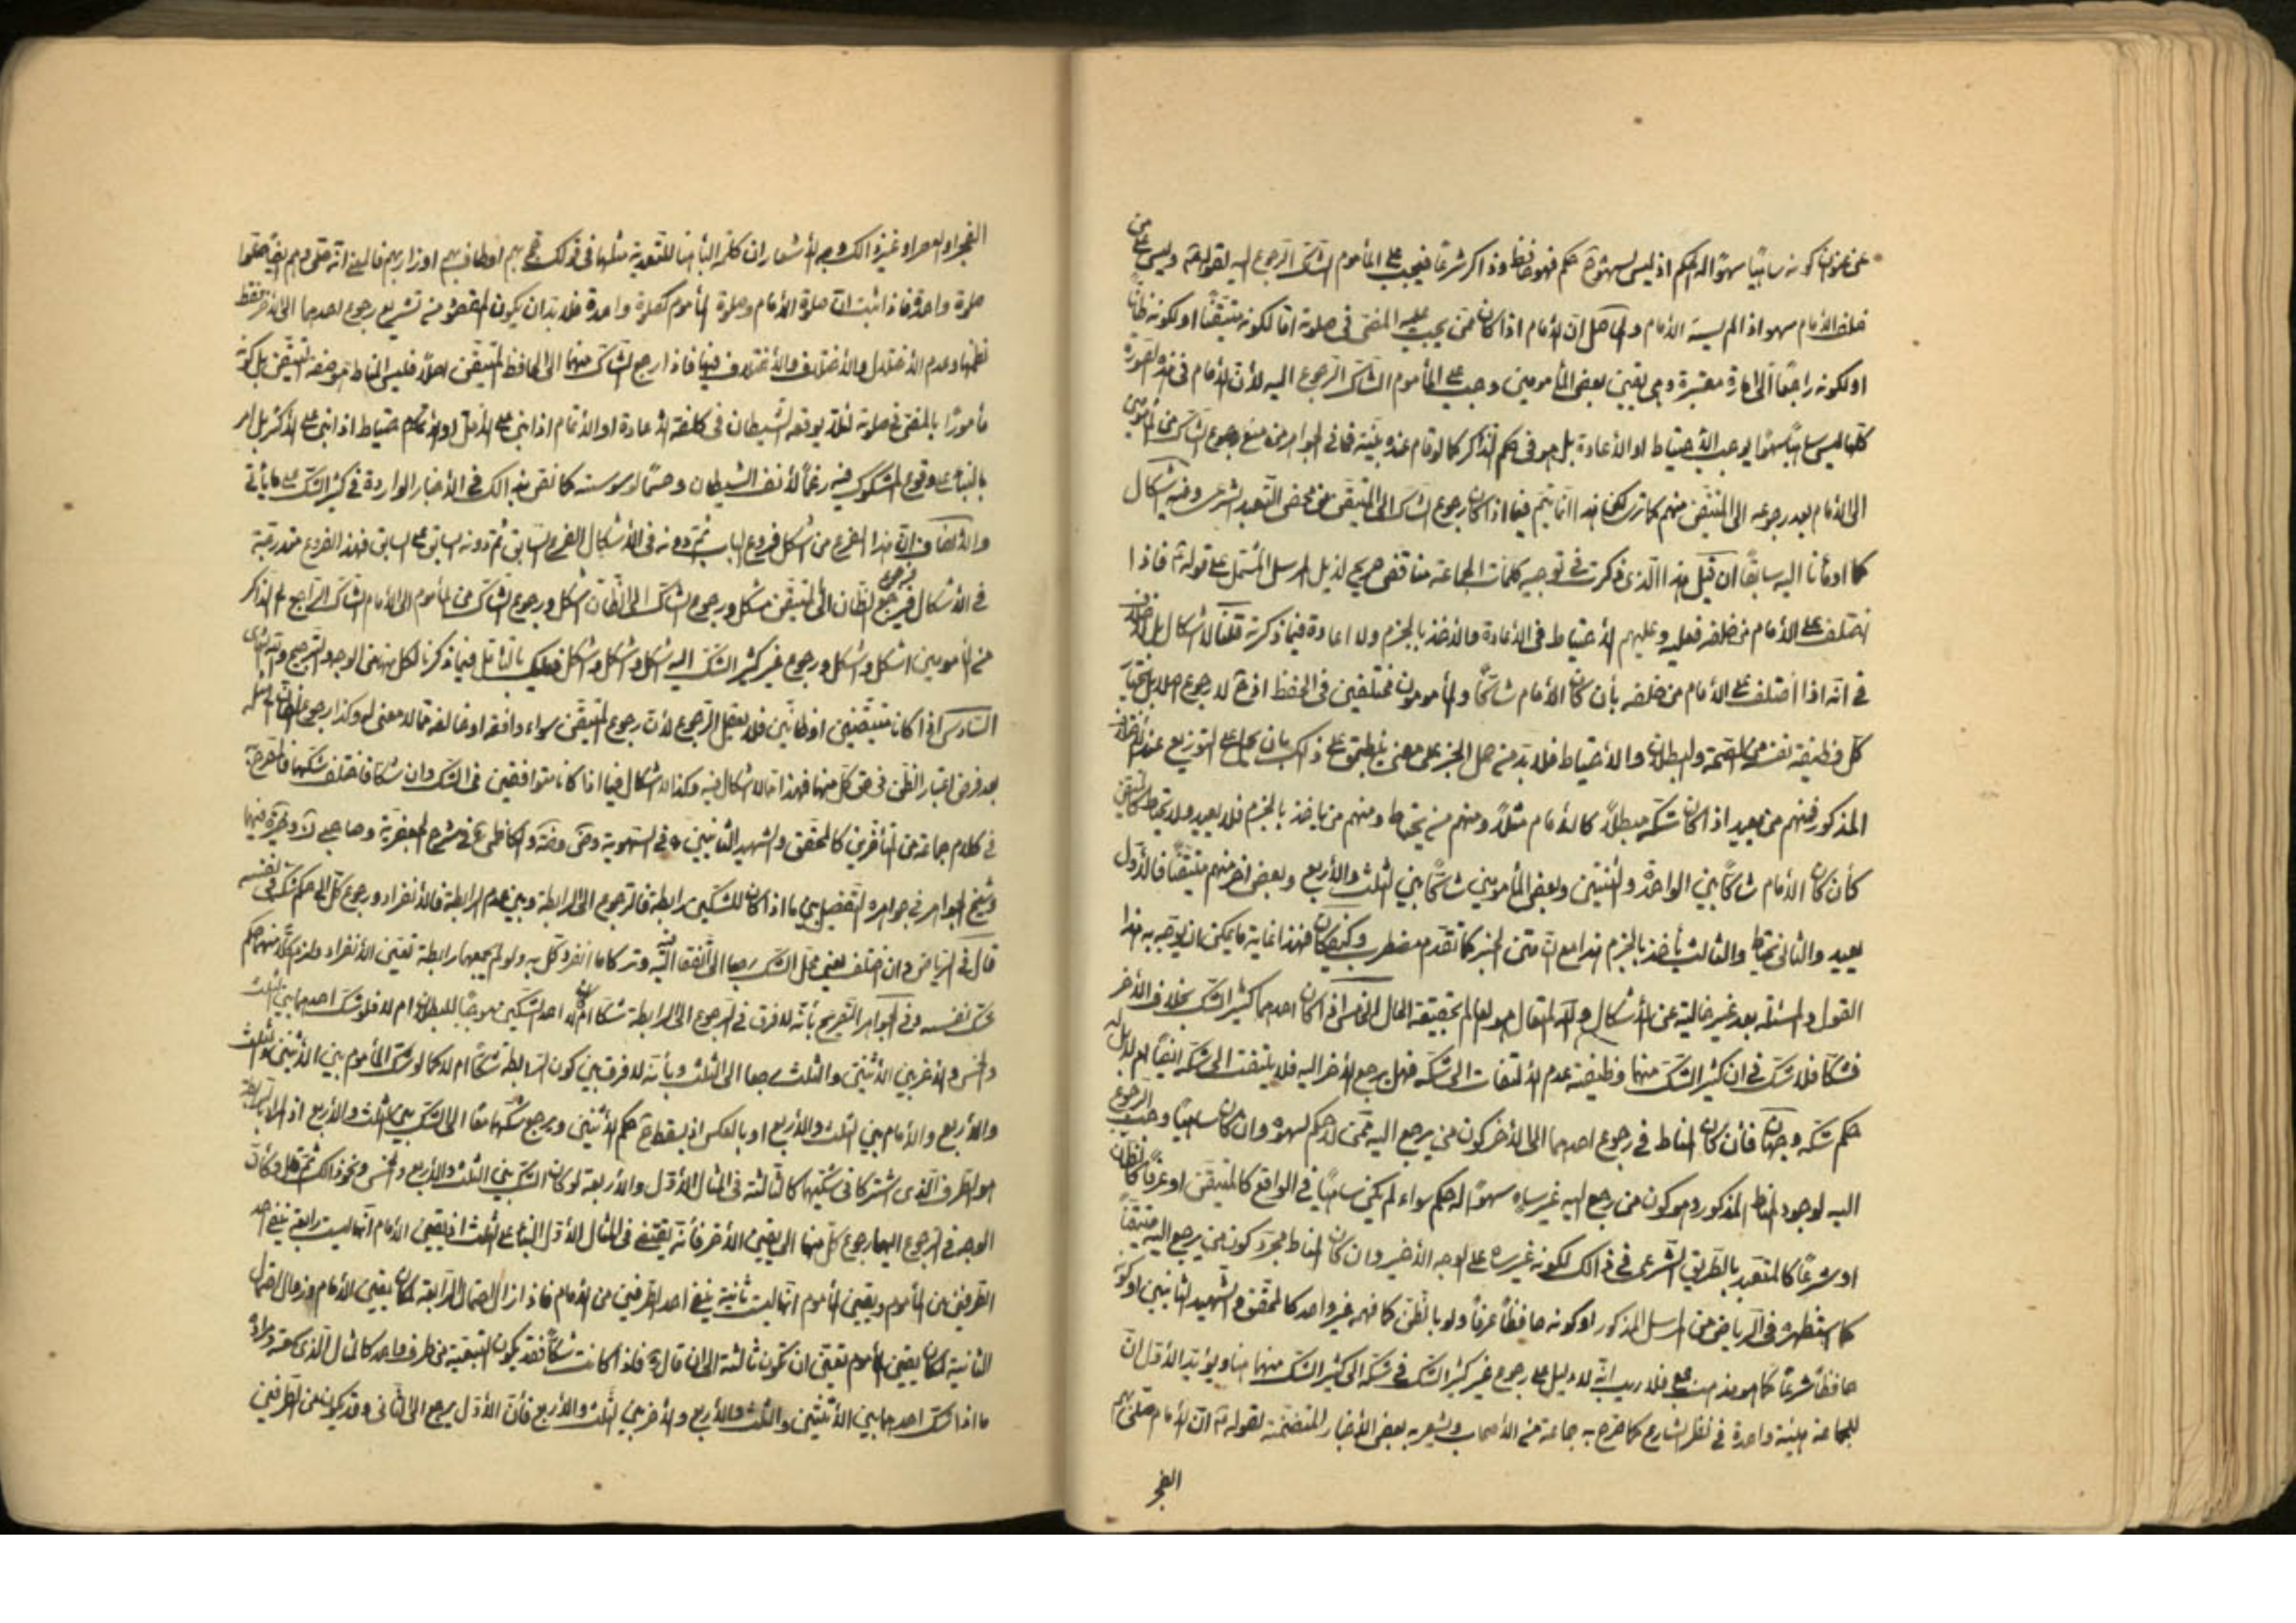 عن عنوان كونه ساهيًا سهوًا له حكم اذ ليس لسهوه ح حكم فهو حافظ وذاكر شرعًا فيجب على المأموم الشاك الرجوع اليه لقوله ع وليس على من
خلف الامام سهو اذا لم يسه الامام والحاصل ان الامام اذا كان ممن يجب عليه المضى فى صلوته امّا لكونه متيقّنًا او لكونه ظانًا
او لكونه راجعًا الى امارة معتبرة وهى يقين بعض المأمومين وجب على المأموم الشاك الرجوع اليه لأن الامام فى هذه الصورة
كلها ليس ساهيًا سهوًا يوجب الاحتياط او الاعادة بل هو فى حكم الذاكر كما لو قام عنده بيّنة فما فى الجواهر من منع رجوع الشاك من المأمومين
الى الامام بعد رجوعه الى المتيقن منهم كما ترى لكن هذا انما يتم فيما اذا كان رجوع الشاك الى المتيقن من محض التعبد الشرعى وفيه اشكال
كما اومأنا اليه سابقًا ان قيل هذا الذى ذكرت فى توجيه كلمات الجماعة مناقض صريح لذيل المرسل المشتمل على قوله ع فاذا
اختلف على الامام من خلفه فعليه وعليهم الاحتياط فى الاعادة والاخذ بالجزم ولا اعادة فيما ذكرته قلنا لا اشكال بل لا خلاف
فى انه اذا اختلف على الامام من خلفه بأن كان الامام شاكًا والمأمومون مختلفين فى الحفظ اذ ح لا رجوع اصلا بل يختص
كل وظيفة نفسه من الصحة والبطلان والاحتياط فلا بد من حمل الخبر على معنى ينطبق على ذلك بان يحمل على التوزيع عند الانفراد
المذكور فمنهم من يعيد اذا كان شكه مبطلًا كالامام مثلًا ومنهم من يحتاط ومنهم من يأخذ بالجزم فلا يعيد ولا يحتاط كالمتيقن
كأن كان الامام شاكًا بين الواحدة والثنتين وبعض المأمومين شاكًا بين الثلث والاربع وبعض اخر منهم متيقنًا فالاول
يعيد والثانى يحتاط والثالث يأخذ بالجزم هذا مع ان متن الخبر كما تقدم مضطرب وكيف كان فهذا غاية ما يمكن ان يوجّه به هذا
القول والمسئلة بعد غير خالية عن الاشكال والله المتعال هو العالم بحقيقة الحال الخامس اذا كان احدهما كثير الشك بخلاف الاخر
فشكّا فلا شك فى ان كثير الشك منهما وظيفته عدم الالتفات الى شكه فهل يرجع الاخر اليه فلا يلتفت الى شكه ايضًا ام لا بل له
حكم شكه وجهان فأن كان المناط فى رجوع احدهما الى الاخر كون من يرجع اليه ممن لا حكم لسهوه وان كان ساهيًا وجب الرجوع
اليه لوجود المناط المذكور وهو كون من رجع اليه غير ساه سهوًا له حكم سواء لم يكن ساهيًا فى الواقع كالمتيقن او عرفًا كالظان
او شرعًا كالمتعبد بالطريق الشرعى فى ذلك لكونه غير ساه على الوجه الاخير وان كان المناط مجرد كون من يرجع اليه متيقنًا
كما استظهره فى الرياض من المرسل المذكور او كونه حافظًا عرفًا ولو بالظن كما فهمه غير واحد كالمحقق والشهيد الثانيين او كونه
حافظًا شرعًا كما هو مذهب فلا ريب انه لا دليل على رجوع غير كثير الشك فى شكه الى كثير الشك منهما هنا ويؤيد الاول ان
للجماعة هيئة واحدة فى نظر الشارع كما صرّح به جماعة من الاصحاب ويشعر به بعض الاخبار المتضمنة لقوله ع ان الامام صلى بهم
الفجر
الفجر او العصر او غير ذلك وجه الاشعار ان كلمة الباء هنا للتعدية مثلها فى قولك حج بهم او طاف بهم او زار بهم فالمعنى انه صلى وهم ايضًا صلّوا
صلوة واحدة فاذا اثبت ان صلوة الامام وصلوة المأموم كصلوة واحدة فلا بد ان يكون المقصود من تشريع رجوع احدهما الى الاخر حفظ
نظمها وعدم الاختلال والاختلاف والاختلاف فيها فاذا رجع الشاك منهما الى الحافظ المتيقن اصلًا فليس المناط هو صفة التيقن بل كونه
مأمورًا بالمضى فى صلوته لئلا يوقعه الشيطان فى كلفة الاعادة او الاتمام اذا بنى على الاقل او الاحتياط اذا بنى على الاكثر بل امر
بالبناء على وقوع المشكوك فيه رغمًا لأنف الشيطان وحسمًا لوسوسته كما نص بذلك فى الاخبار الواردة فى كثير الشك على ما يأتى
والانصاف ان هذا الفرع من اشكل فروع الباب ثم دونه فى الاشكال الفرع السابق ثم دونه السابق على السابق فهذه الفروع متدرجة
فى الاشكال فرجوع الظان الى المتيقن مشكل ورجوع الشاك الى الظان اشكل ورجوع الشاك من المأموم الى الامام الشاك الراجع الى الذاكر
من المأمومين اشكل واشكل ورجوع غير كثير الشك اليه اشكل واشكل واشكل فعليك بالتأمل فيما ذكرنا لكل منها من الوجه والترجيح والله الهادى
السادس اذا كانا متيقنين او ظانين فلا يعقل الرجوع لأن رجوع المتيقن سواء وافقه او خالفه مما لا معنى له وكذا رجوع الظان الى مثله
بعد فرض اعتبار الظن فى حق كل منهما فهذا مما لا اشكال فيه وكذا لا اشكال فيما اذا كانا متوافقين فى الشك وان شكّا فاختلف شكهما فالمصرح به
فى كلام جماعة من المتأخرين كالمحقق والشهيد الثانيين فى السهوية وضه والكاظمى فى شرح الجعفرية وصاحب وغيره منهما
وشيخ الجواهر فى جواهره التفصيل بين ما اذا كان للشكين رابطة فالرجوع الى الرابطة وبين عدم الرابطة فالانفراد ورجوع كل الى حكم شكه فى نفسه
قال فى الرياض وان اختلف يعنى محل الشك رجعا الى ما اتفقا عليه وتركا ما انفرد كل به ولو لم يجمعهما رابطة تعين الانفراد ولزم كلا منهما حكم
شك نفسه وفى الجواهر التصريح بأنه لا فرق فى الرجوع الى الرابطة شكّا كان ام لا احد الشكين موجبًا للبطلان ام لا فلو شك احدهما بين الثلث
والخمس والاخر بين الاثنتين والثلث رجعا الى الثلث وبأنه لا فرق بين كون الرابطة شكًا ام لا كما لو شك المأموم بين الاثنتين والثلث
والاربع والامام بين الثلث والاربع او بالعكس اذ يسقط ح حكم الاثنتين ويرجع شكهما معًا الى الشك بين الثلث والاربع اذ المراد بالرابطة
هو الطرف الذى اشتركا فى شكيهما كالثالثة فى المثال الاول والاربعة لو كان الشك بين الثلث والاربع والخمس ونحو ذلك ثم قال وكأن
الوجه فى الرجوع اليها رجوع كل منهما الى يقين الاخر فأنه يقتضى فى المثال الاول البناء على الثلث اذ يقين الامام انها ليست رابعة ينفى احد
الطرفين من المأموم ويقين المأموم انها ليست ثانية ينفى احد الطرفين من الامام فاذا زال احتمال الرابعة لمكان يقين الامام وزوال احتمال
الثانية لمكان يقين المأموم تعين ان تكون ثالثة الى ان قال فلو كانت شكًا فقد يكون التبعية من طرف واحد كالمثال الذى سمعته ومراده
ما اذا شك احدهما بين الاثنتين والثلث والاربع والاخر بين الثلث والاربع فأن الاول يرجع الى الثانى وقد يكون من الطرفين